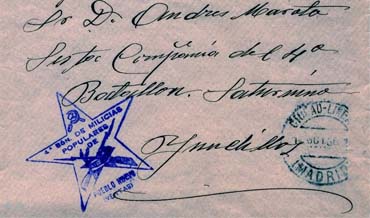 Sr D. Andres Marota
Sexta Compañia del 4º
Batallon. Saturnino
4º BON. DE MILICIAS
POPULARES
DE
PUEBLO NUEVO
(VENTAS)
MADRID